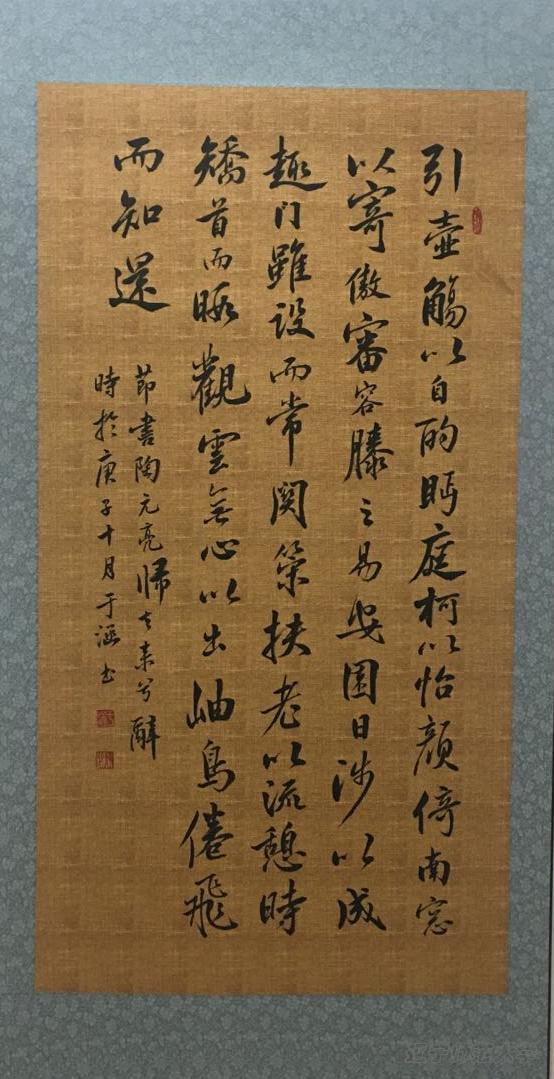 引壺觴以自酌眄庭柯以怡顔倚南窓
以寄傲審容膝之易安園日涉以成
趣门雖设而常関策扶老以流憩時
矯首而暇觀雲無心以出岫鳥倦飛
而知還
節書陶元亮歸去来兮辭
時於庚子十月于涵书